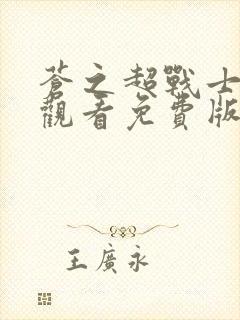 蒼之超戰士
觀看免費版
王廣永